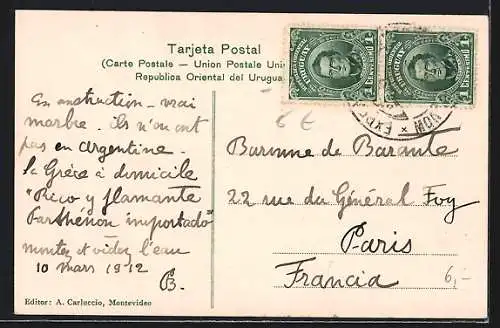 Tarjeta Postal
(Carte Postale — Union Postale Uni
Republica Oriental del Urugua
En construction – vrai
marbre. ils n'en ont
pas en argentine.
la Grèce à domicile
"Rico y flamante
Parthénon importado"
montez et videz l'eau
10 mars 1912
B.
Editor: A. Carluccio, Montevideo
URUGUAY
1 1
URUGUAY
1 1
MON
EXP
6 €
Baronne de Barante
22 rue du Général Foy
Paris
Francia
6,-